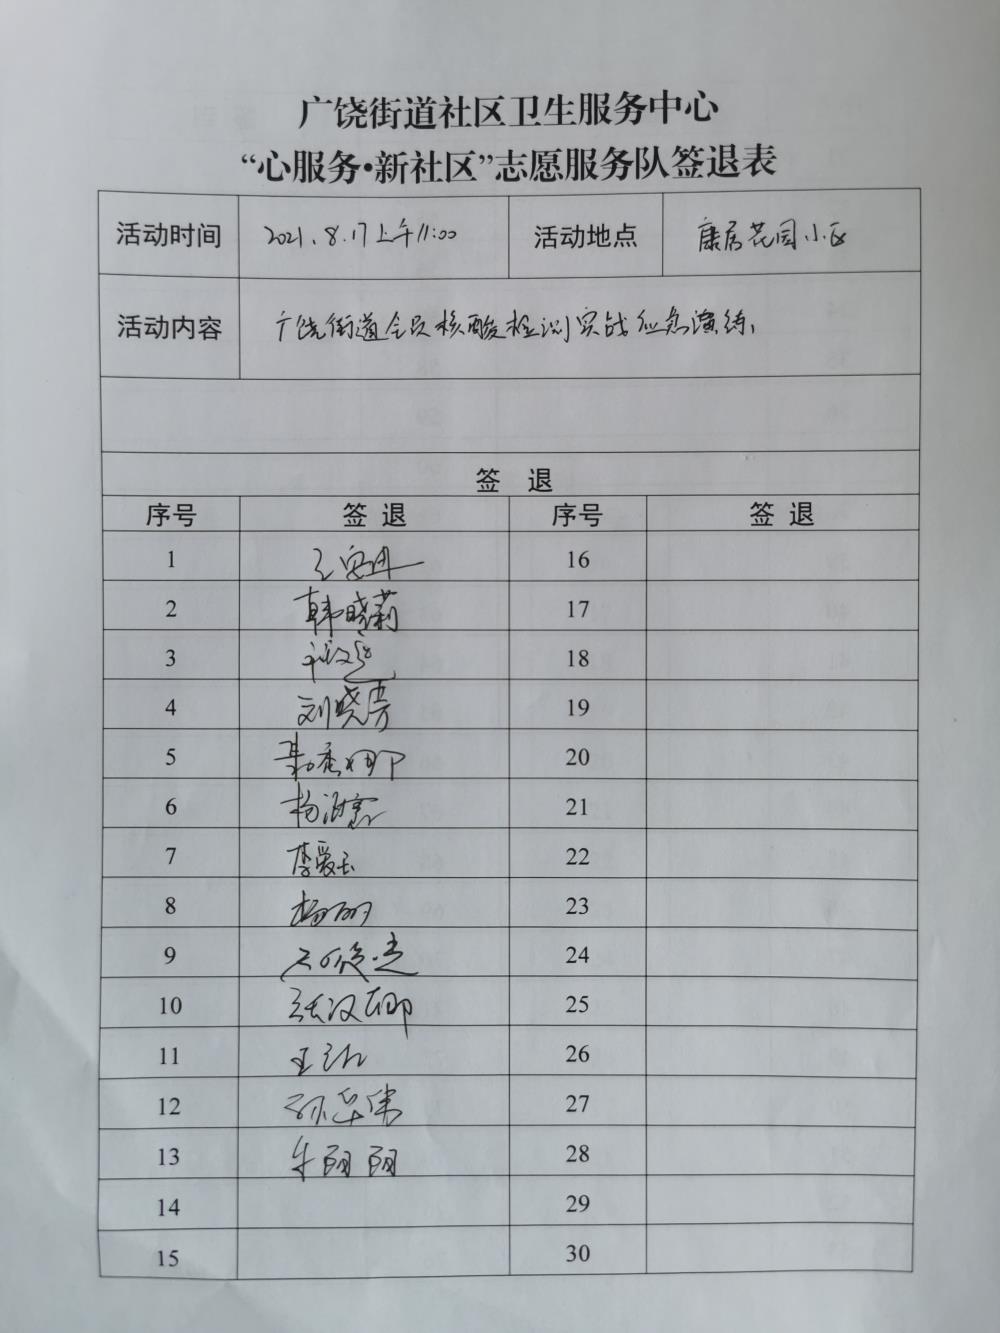 广饶街道社区卫生服务中心
“心服务·新社区”志愿服务队签退表
活动时间 2021.8.17上午11:00 活动地点 康居花园小区
活动内容 广饶街道全员核酸检测实战应急演练
签 退
序号 签 退 序号 签 退
1 16
2 韩晓莉 17
3 18
4 刘晓芳 19
5 20
6 21
7 李爱玉 22
8 杨丽 23
9 24
10 25
11 26
12 孙华伟 27
13 朱阴阴 28
14 29
15 30